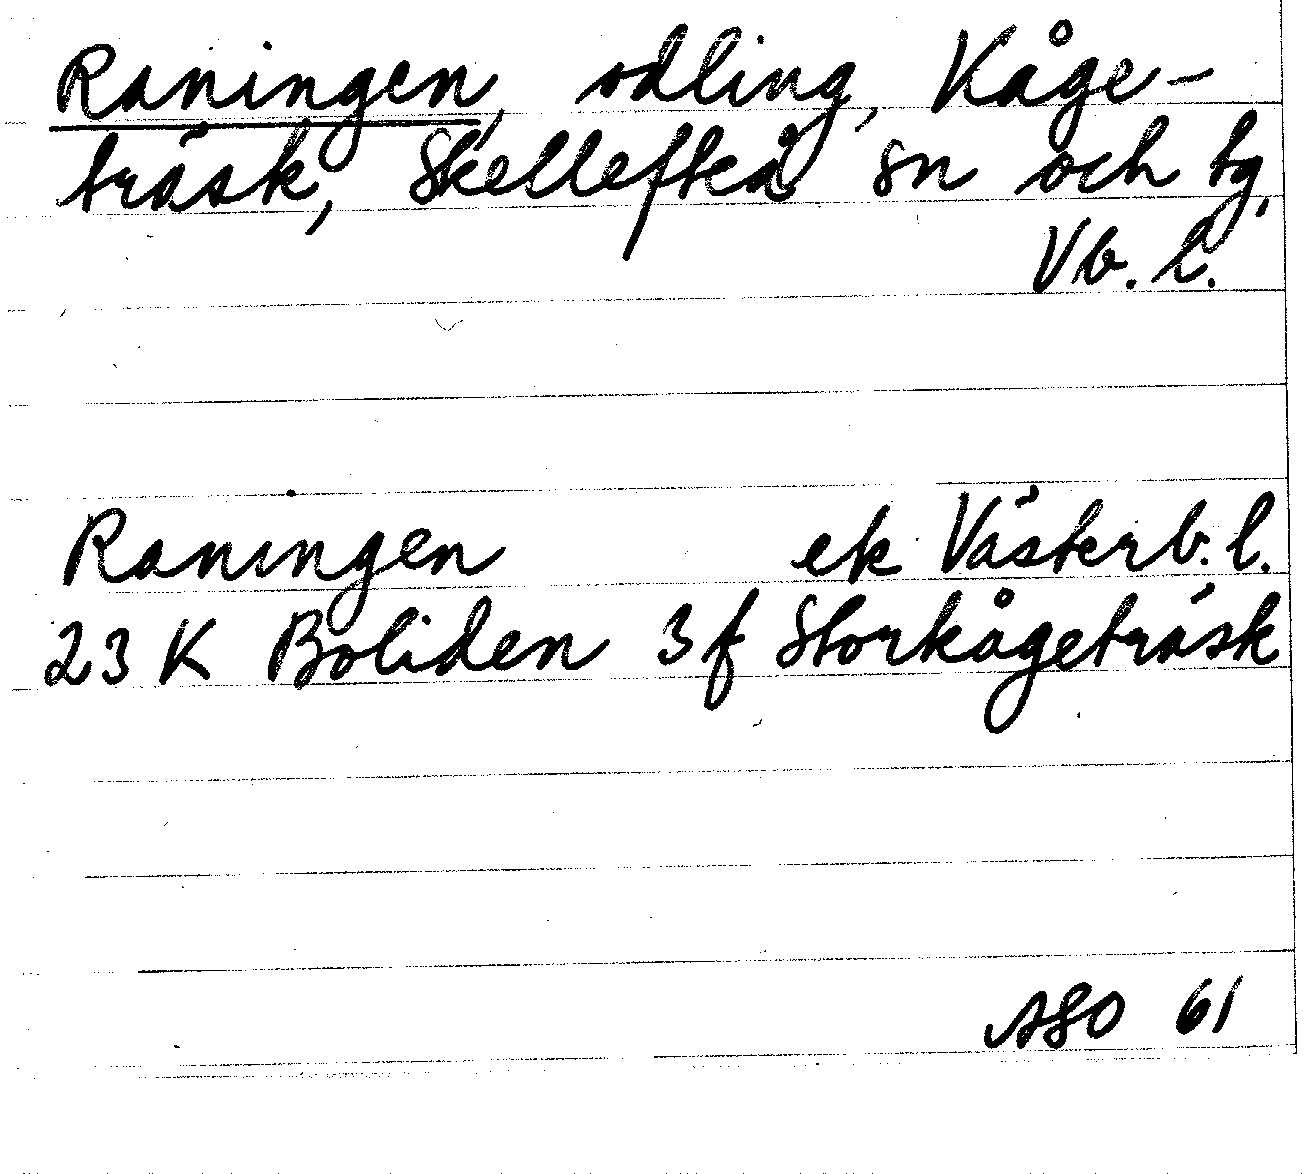 Raningen, odling, Kåge-
träsk, Skellefteå sn och tg,
Vb. l.
Raningen ek Västerb. l.
23 K Boliden 3 f Storkågeträsk
ASO 61